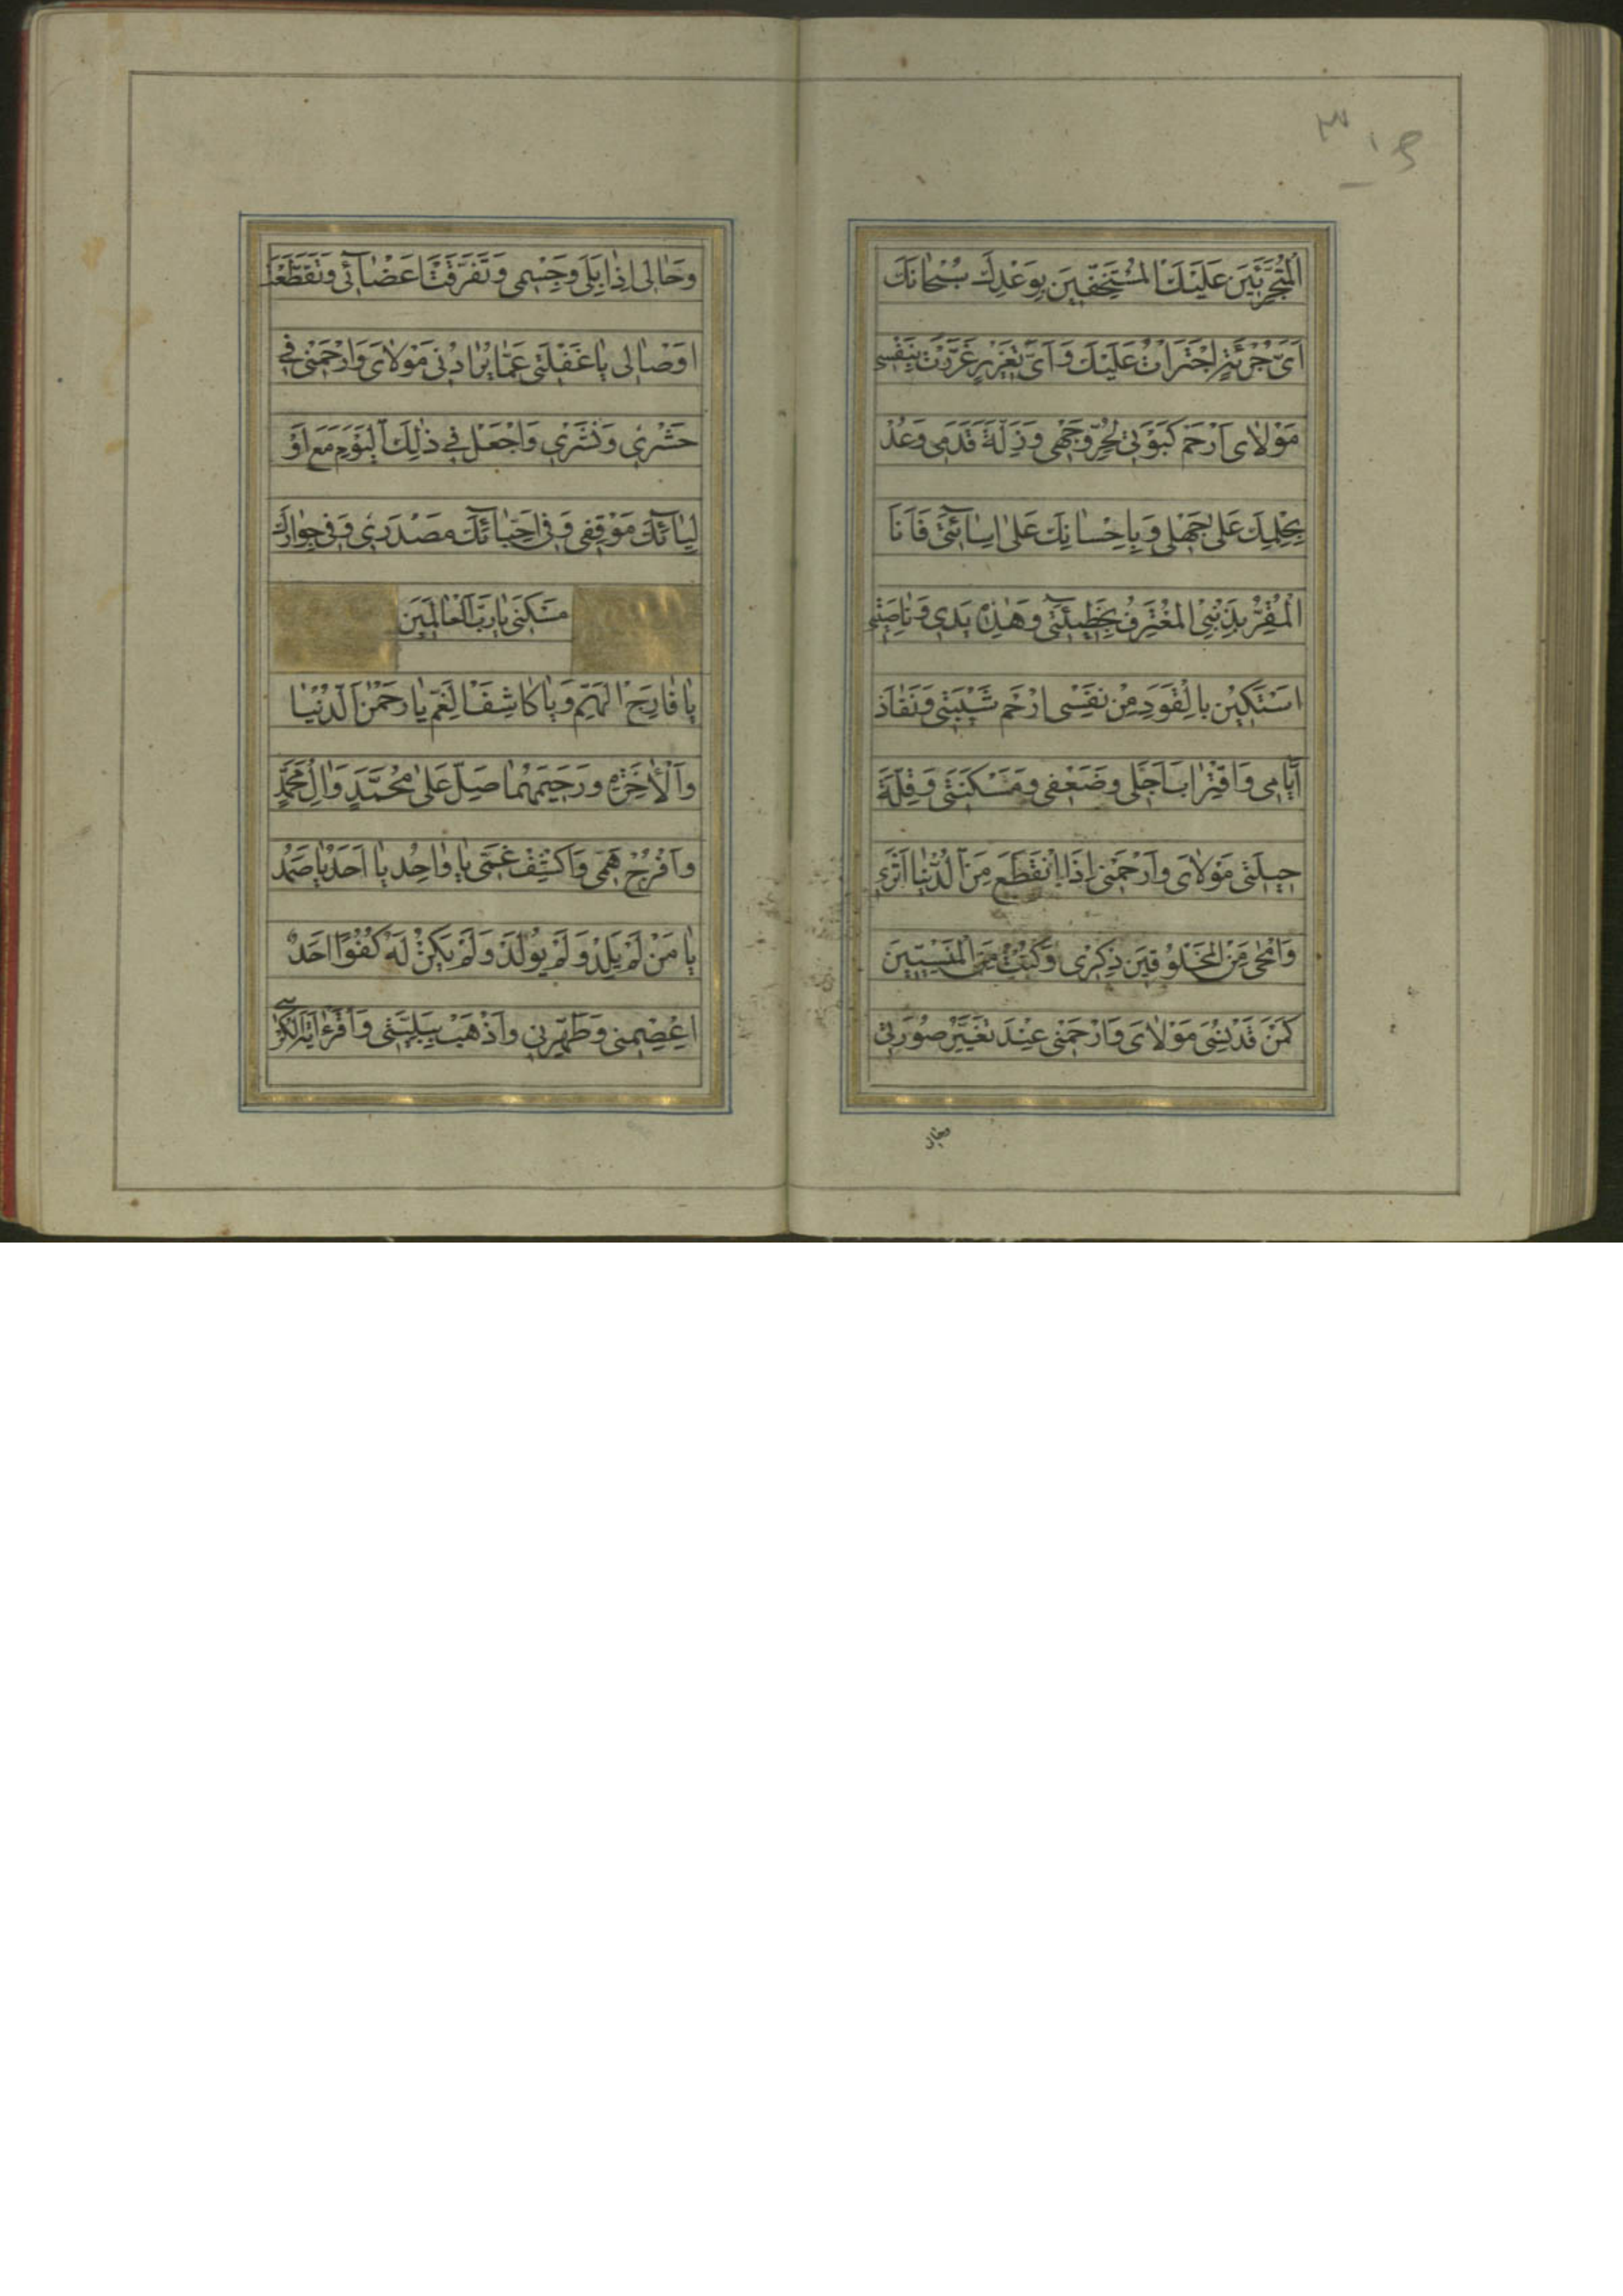 الْمُتَجَرِّئِينَ عَلَيْكَ الْمُسْتَخِفِّينَ بِوَعْدِكَ سُبْحَانَكَ
اَىَّ جُرْئَةٍ اجْتَرَاْتُ عَلَيْكَ وَ اَىَّ تَغْرِيرٍ غَرَّرْتُ بِنَفْسِى
مَوْلاٰى اَرْحَمْ كَبْوَتِى لِحُرِّ وَجْهِى وَ زَلَّةَ قَدَمِى وَعُدْ
بِحِلْمِكَ عَلىٰ جَهْلِى وَ بِاِحْسٰانِكَ عَلىٰ اِسٰائَتِى فَاَنَا
الْمُقِرُّ بِذَنْبِى الْمُعْتَرِفُ بِخَطِيئَتِى وَ هٰذِهِ يَدِى وَ نٰاصِيَتِى
اسْتَكِينُ بِالْقَوَدِ مِنْ نَفْسِى ارْحَمْ شَيْبَتِى وَ نَفٰادَ
اَيّٰامِى وَ اقْتِرٰابَ اَجَلِى وَ ضَعْفِى وَ مَسْكَنَتِى وَ قِلَّةَ
حِيلَتِى مَوْلاٰىَ وَ اَرْحَمْنِى اِذَا انْقَطَعَ مِنَ الدُّنْيٰا اَثَرِى
وَ امَّحىٰ مِنَ الْمَخْلُوقِينَ ذِكْرِى وَ كُنْتُ مِنَ الْمَنْسِيِّينَ
كَمَنْ قَدْ نُسِىَ مَوْلاٰىَ وَ ارْحَمْنِى عِنْدَ تَغَيُّرِ صُورَتِى
وَ حٰالِى اِذٰا بَلِىَ وَ جِسْمِى وَ تَفَرَّقَتْ اَعْضٰائِى وَ تَقَطَّعَتْ
اَوْصٰالِى يٰا غَفْلَتِى عَمّٰا يُرٰادُ بِى مَوْلاٰىَ وَ ارْحَمْنِى فِى
حَشْرِى وَ نَشْرِى وَ اجْعَلْ فِى ذٰلِكَ الْيَوْمِ مَعَ اَوْ
لِيٰائِكَ مَوْقِفِى وَ فِى اَحِبّٰائِكَ مَصْدَرِى وَ فِى جِوٰارِكَ
مَسْكَنِى يٰا رَبَّ الْعٰالَمِينَ
يٰا فٰارِجَ الْهَمِّ وَ يٰا كٰاشِفَ الْغَمِّ يٰا رَحْمٰنَ الدُّنْيٰا
وَ الْاٰخِرَةِ وَ رَحِيمَهُمٰا صَلِّ عَلىٰ مُحَمَّدٍ وَ اٰلِ مُحَمَّدٍ
وَ افْرُجْ هَمِّى وَ اكْشِفْ غَمِّى يٰا وٰاحِدُ يٰا اَحَدُ يٰا صَمَدُ
يٰا مَنْ لَمْ يَلِدْ وَ لَمْ يُولَدْ وَ لَمْ يَكُنْ لَهُ كُفُوًا اَحَدٌ
اعْصِمْنِى وَ طَهِّرْنِى وَ اذْهَبْ بِبَلِيَّتِى وَ اقْرَءْ اٰيَةَ الْكُرْسِى